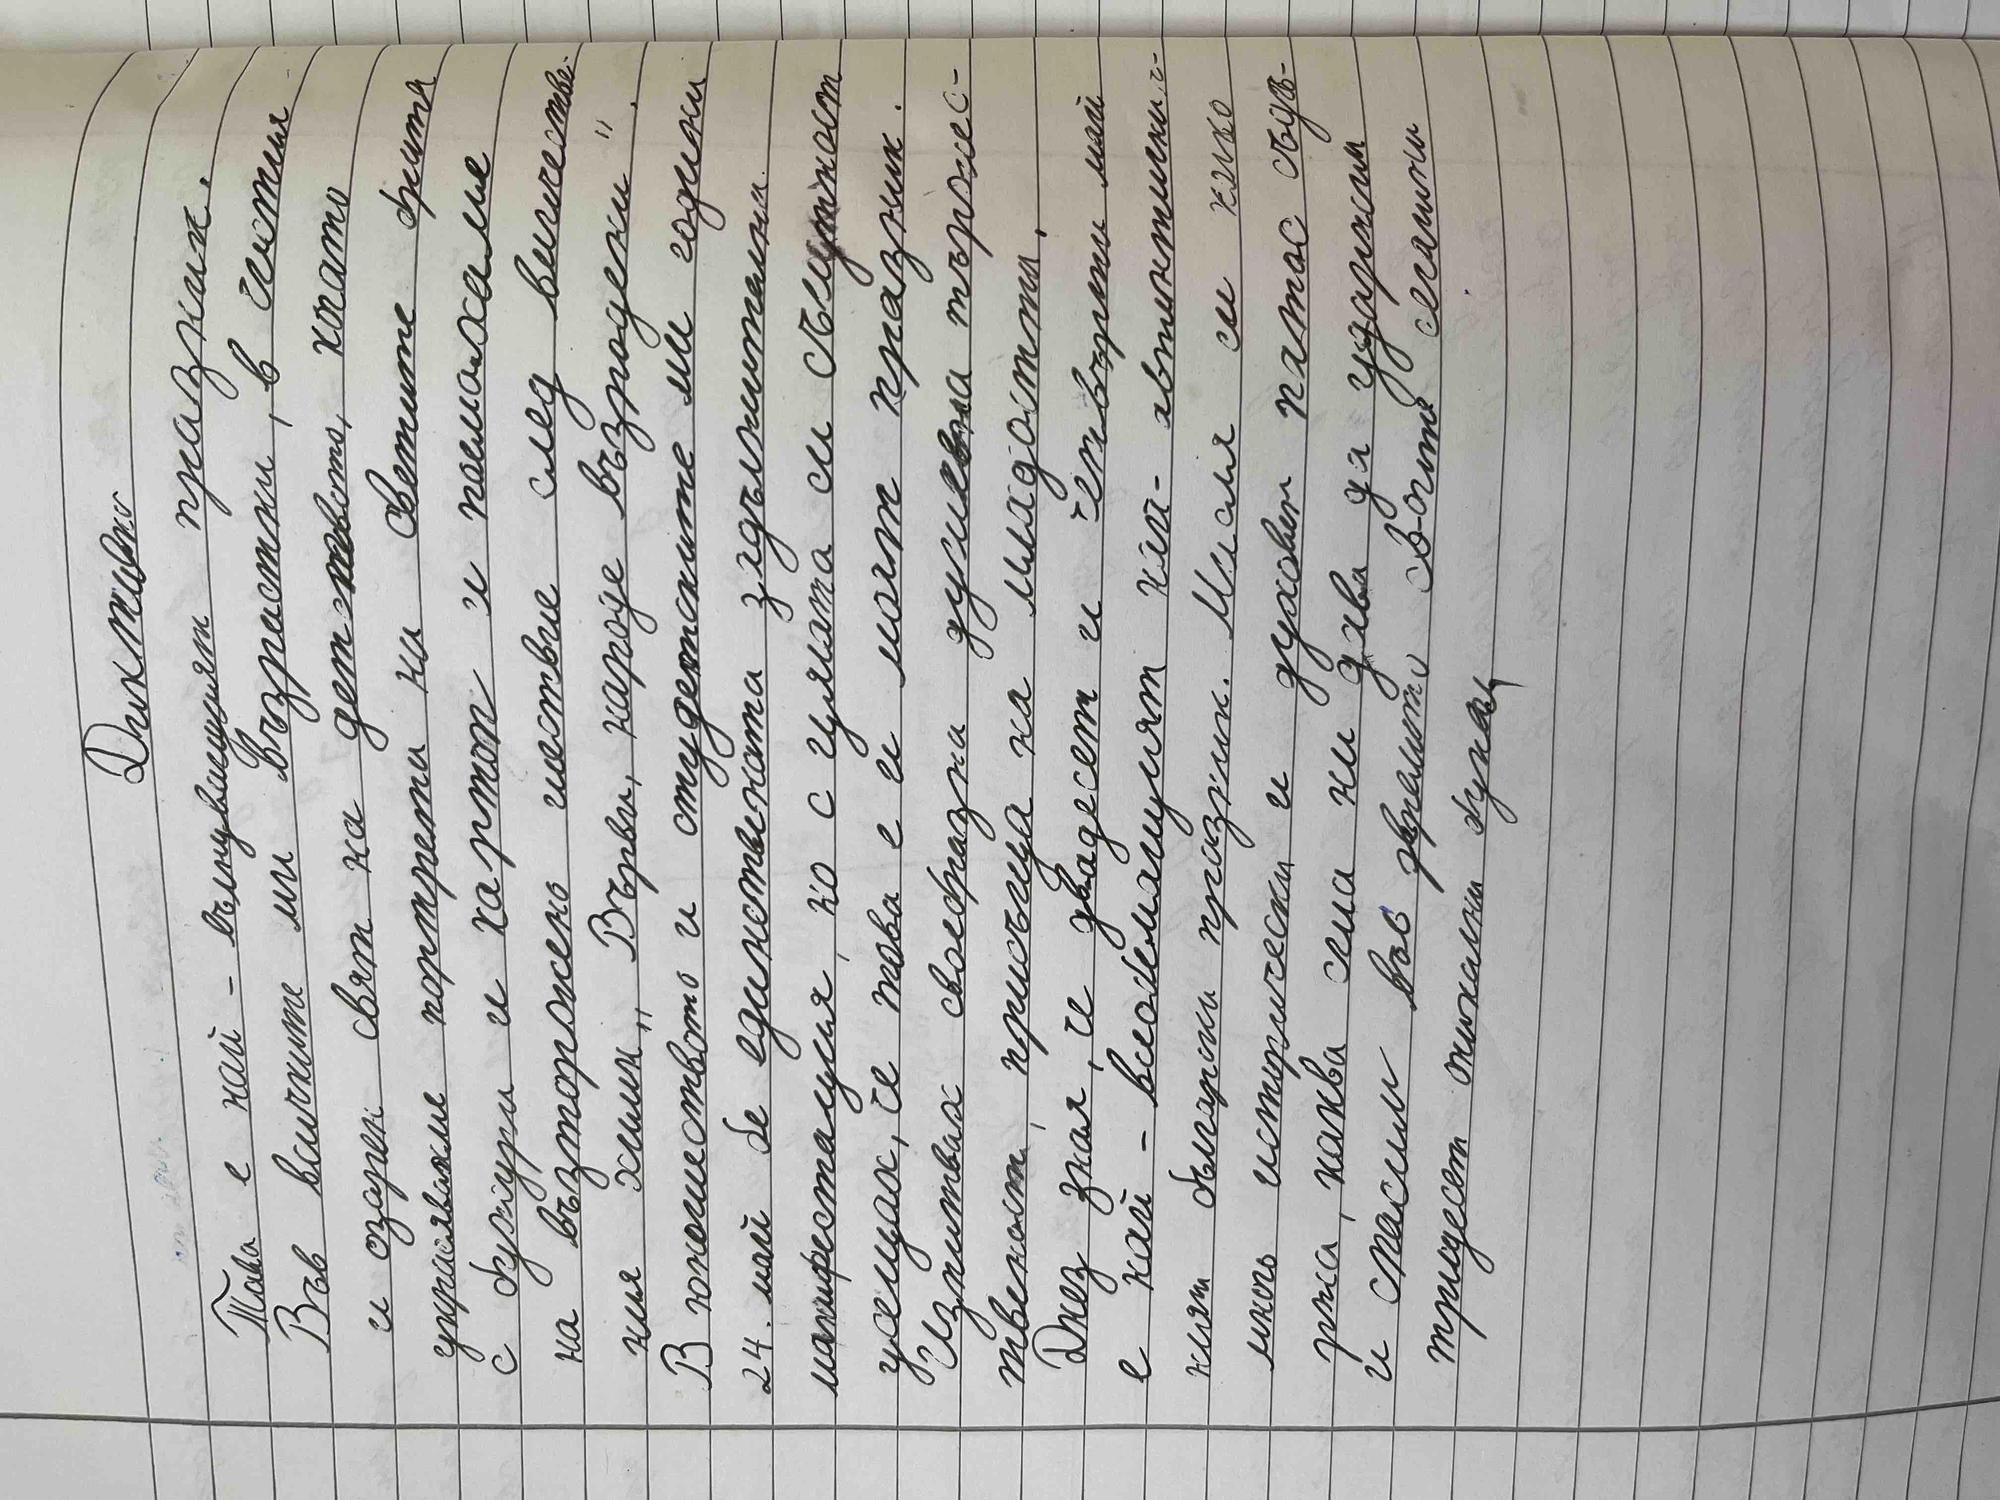 Диктовка
Това е най-вълнуващият празник.
Във всичките ми възрастки, в чистия
и озарен свят на детството, когато
украсявахме портрети на светите братя
с букури и хартон и поемахаме
на възторжено шествие след величестве-
ния химн „Върви, народе възродени".
В юношеството и студентските ми години
24. май бе единствената задължителна
манифестация, но с цялата си същност
усещах, че това е и моят празник.
Изпитвах своебразна душевна тържес-
твеност, присъща на младостта.
Днес зная, че двадесет и четвърти май
е най-всеобемащият най-автентични-
ният български празник. Мисля си колко
много исторически и духовен патос съдъ-
ржа, каква сила ни дава да удържим
и спасим във времето своите сегашни
тридесет уникални букви